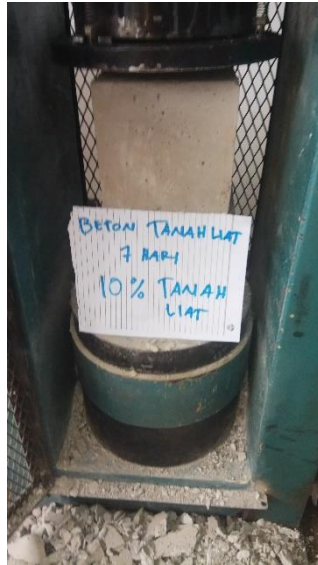 BETON TANAH LIAT
7 HARI
10% TANAH
LIAT